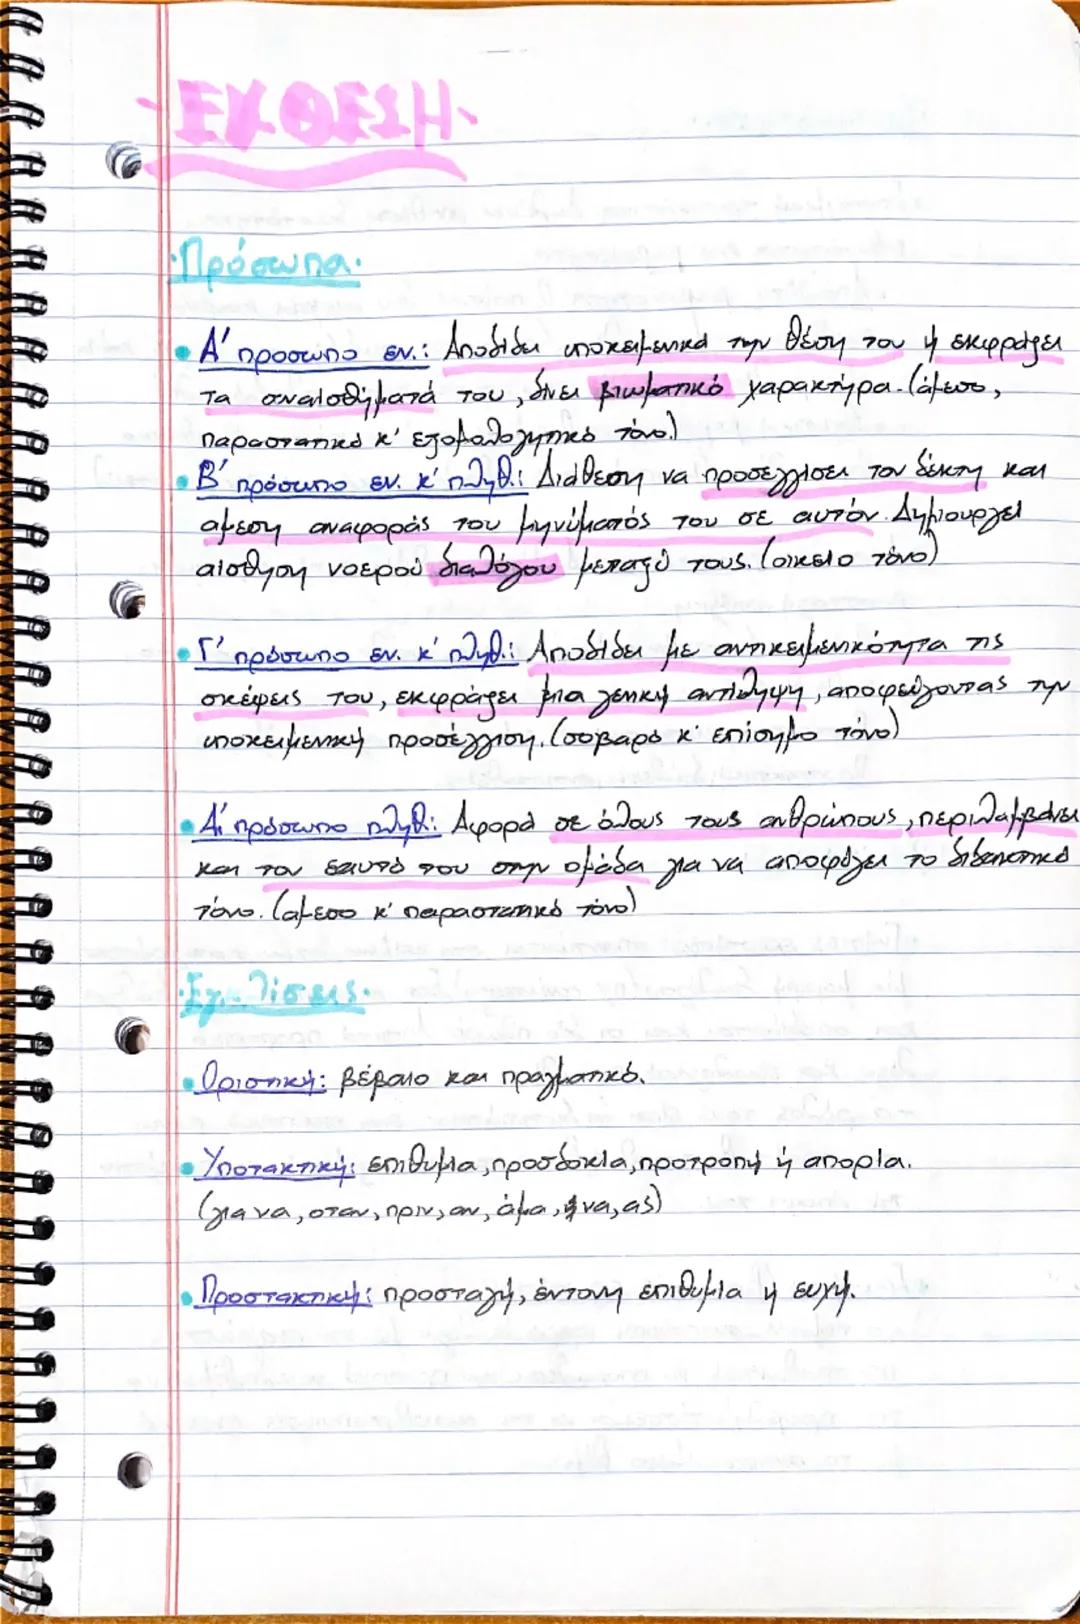 ·ΕΚΘΕΣΗ·
·Πρόσωπα·
• Α' προσωπο εν.: Αποδίδει υποκειμενικά την θέση του ή εκφράζει
τα συναισθήματά του, δίνει βιωματικό χαρακτήρα. (άμεσο,
παραστατικό κ' εξομολογητικό τόνο.)
• Β' πρόσωπο εν. κ' πληθ.: Διάθεση να προσεγγίσει τον δέκτη και
αμεση αναφοράς του μηνύματός του σε αυτόν. Δημιουργεί
αίσθηση νοερού διαλόγου μεταξύ τους. (οικείο τόνο)
• Γ' πρόσωπο εν. κ' πληθ.: Αποδίδει με αντικειμενικότητα τις
σκέψεις του, εκφράζει μια γενική αντίληψη, αποφεύγοντας την
υποκειμενική προσέγγιση. (σοβαρό κ' επίσημο τόνο)
• Α' πρόσωπο πληθ: Αφορά σε όλους τους ανθρώπους, περιλαμβάνει
και τον εαυτό του στην ομάδα για να αποφύγει το διδακτικό
τόνο. (αμεσο κ' παραστατικό τόνο)
·Εγκλίσεις·
• Οριστική: βέβαιο και πραγματικό.
• Υποτακτική: επιθυμία, προσδοκία, προτροπή ή απορία.
(για να, οταν, πριν, αν, άμα, να, ας)
• Προστακτική: προσταγή, έντονη επιθυμία ή ευχή.